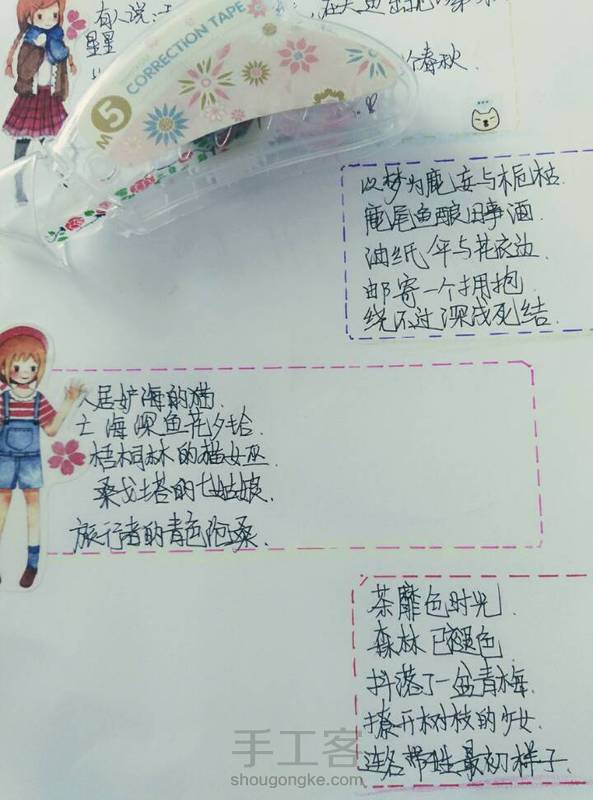 有人说:
星星
个春秋
CORRECTION TAPE
5M
以梦为鹿妄与栀枯.
鹿尾鱼酿旧事酒.
油纸伞与花衣边.
邮寄一个拥抱
绕不过深浅死结.
居旷海的猫.
海深鱼花夕拾.
梧桐林的猫女巫.
桑戈塔的七姑娘.
旅行者的青色阿桑.
荼靡色时光.
森林已褪色.
抖落了一盆青梅.
撩开树枝的少女.
连名带姓最初样子.
手工客
shougongke.com